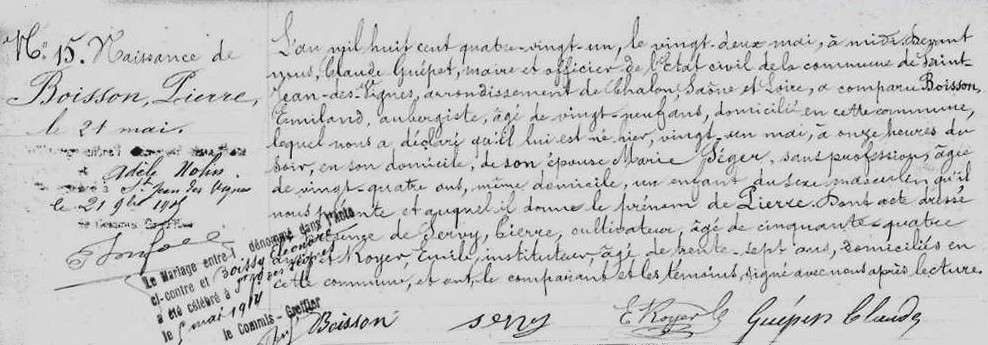 N° 15. Naissance de
Boisson, Pierre,
le 21 mai.
Adèle
à St Jean des Vignes
le 21 9bre
L'an mil huit cent quatre-vingt-un, le vingt-deux mai, à midi devant
nous, Claude Guépet, maire et officier de l'Etat civil de la commune de Saint-
Jean-des-Vignes, arrondissement de Chalon, Saône et Loire, a comparu Boisson,
Emiland, aubergiste, âgé de vingt-neuf ans, domicilié en cette commune,
lequel nous a déclaré qu'il lui est né hier, vingt-un mai, à onze heures du
soir, en son domicile, de son épouse Marie Géger, sans profession, âgée
de vingt-quatre ans, même domicile, un enfant du sexe masculin qu'il
nous présente et auquel il donne le prénom de Pierre. Dont acte dressé
de Servy, Pierre, cultivateur, âgé de cinquante-quatre
et Royer, Emile, instituteur, âgé de trente-sept ans, domiciliés en
cette commune, et ont, le comparant et les témoins, signé avec nous après lecture.
Le Mariage entre l dénommé dans l'Acte
ci-contre et Boissy
a été célébré à
le 5 mai 1914
le Commis-Greffier
Boisson Servy E Royer Guépet Claude